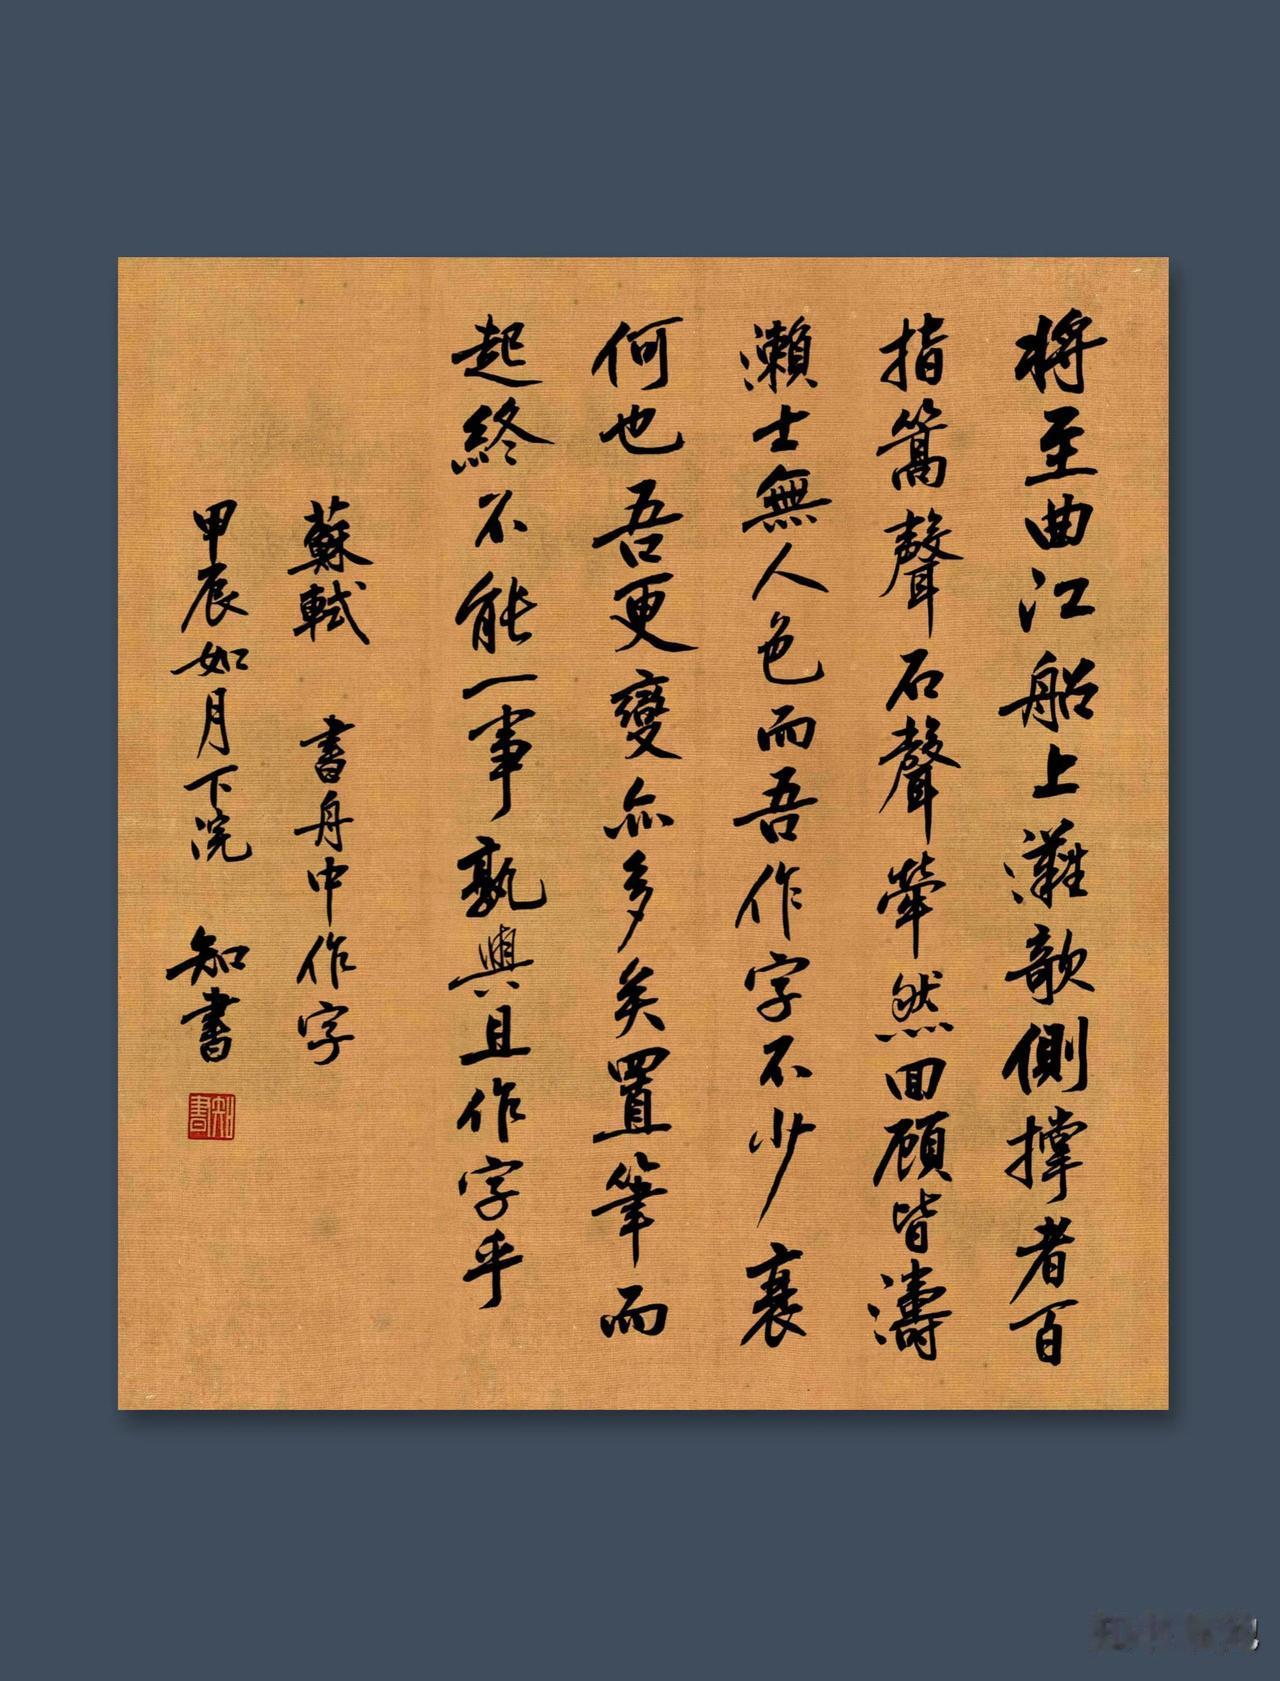 將至曲江船上灘欹側撐者百
指篙聲石聲犖然回顧皆濤
瀨士無人色而吾作字不少衰
何也吾更變亦多矣置筆而
起終不能一事孰與且作字乎
蘇軾 書舟中作字
甲辰如月下浣 知書
知書